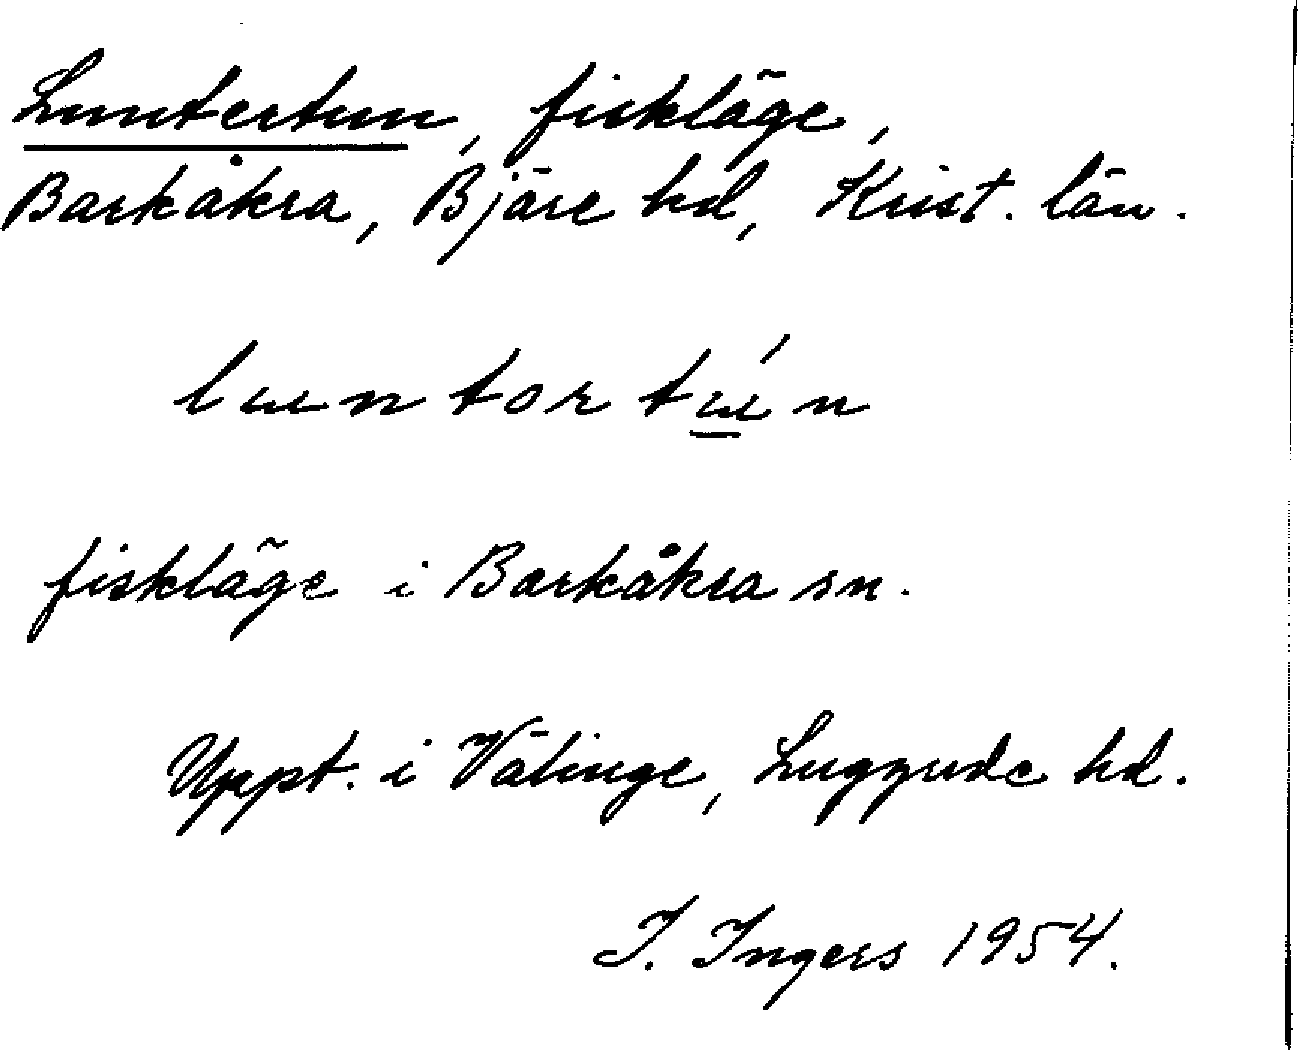 Luntertun, fiskläge,
Barkåkra, Bjäre hd, Krist. län.
lɯntortɯ́n
fiskläge i Barkåkra sn.
Uppt. i Välinge, Luggude hd.
I. Ingers 1954.